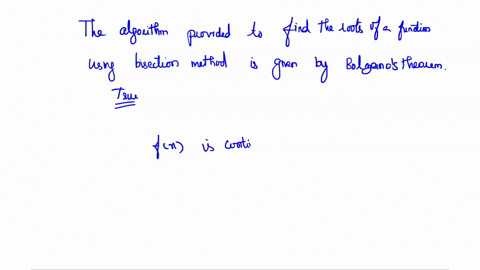 The algorithm provided to find the roots of a function
using bisection method is given by Bolzano's theorem.
True
f(x) is conti